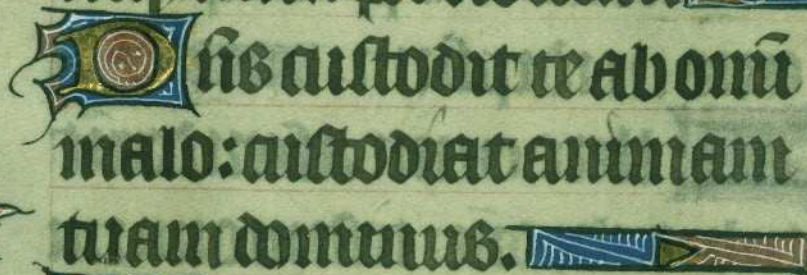 Dñs custodit te ab omī
malo: custodiat animam
tuam dominus.